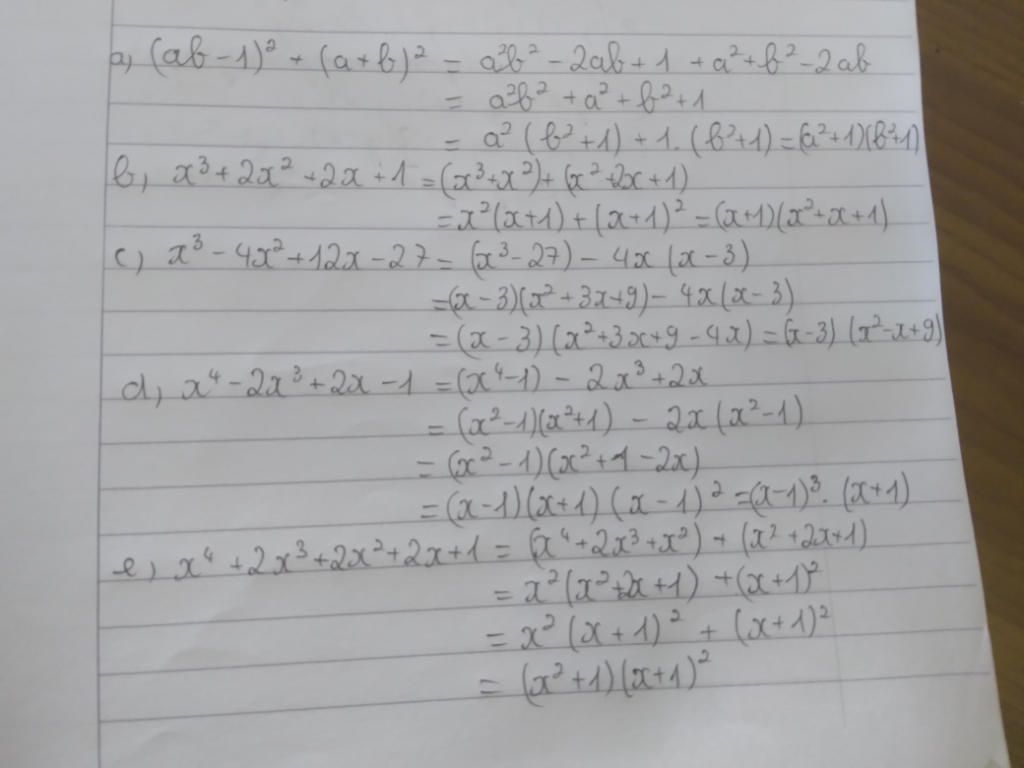 a, (ab-1)² + (a+b)² = a²b² - 2ab + 1 + a² + b² - 2ab
= a²b² + a² + b² + 1
= a² (b²+1) + 1. (b²+1) = (a²+1)(b²+1)
b, x³ + 2x² + 2x + 1 = (x³+x²) + (x²+2x+1)
= x²(x+1) + (x+1)² = (x+1)(x²+x+1)
c) x³ - 4x² + 12x - 27 = (x³-27) - 4x (x-3)
= (x-3)(x²+3x+9) - 4x(x-3)
= (x-3) (x²+3x+9-4x) = (x-3) (x²-x+9)
d, x⁴ - 2x³ + 2x - 1 = (x⁴-1) - 2x³ + 2x
= (x²-1)(x²+1) - 2x (x²-1)
= (x²-1)(x²+1-2x)
= (x-1)(x+1) (x-1)² = (x-1)³. (x+1)
e, x⁴ + 2x³ + 2x² + 2x + 1 = (x⁴+2x³+x²) + (x²+2x+1)
= x²(x²+2x+1) + (x+1)²
= x² (x+1)² + (x+1)²
= (x²+1)(x+1)²